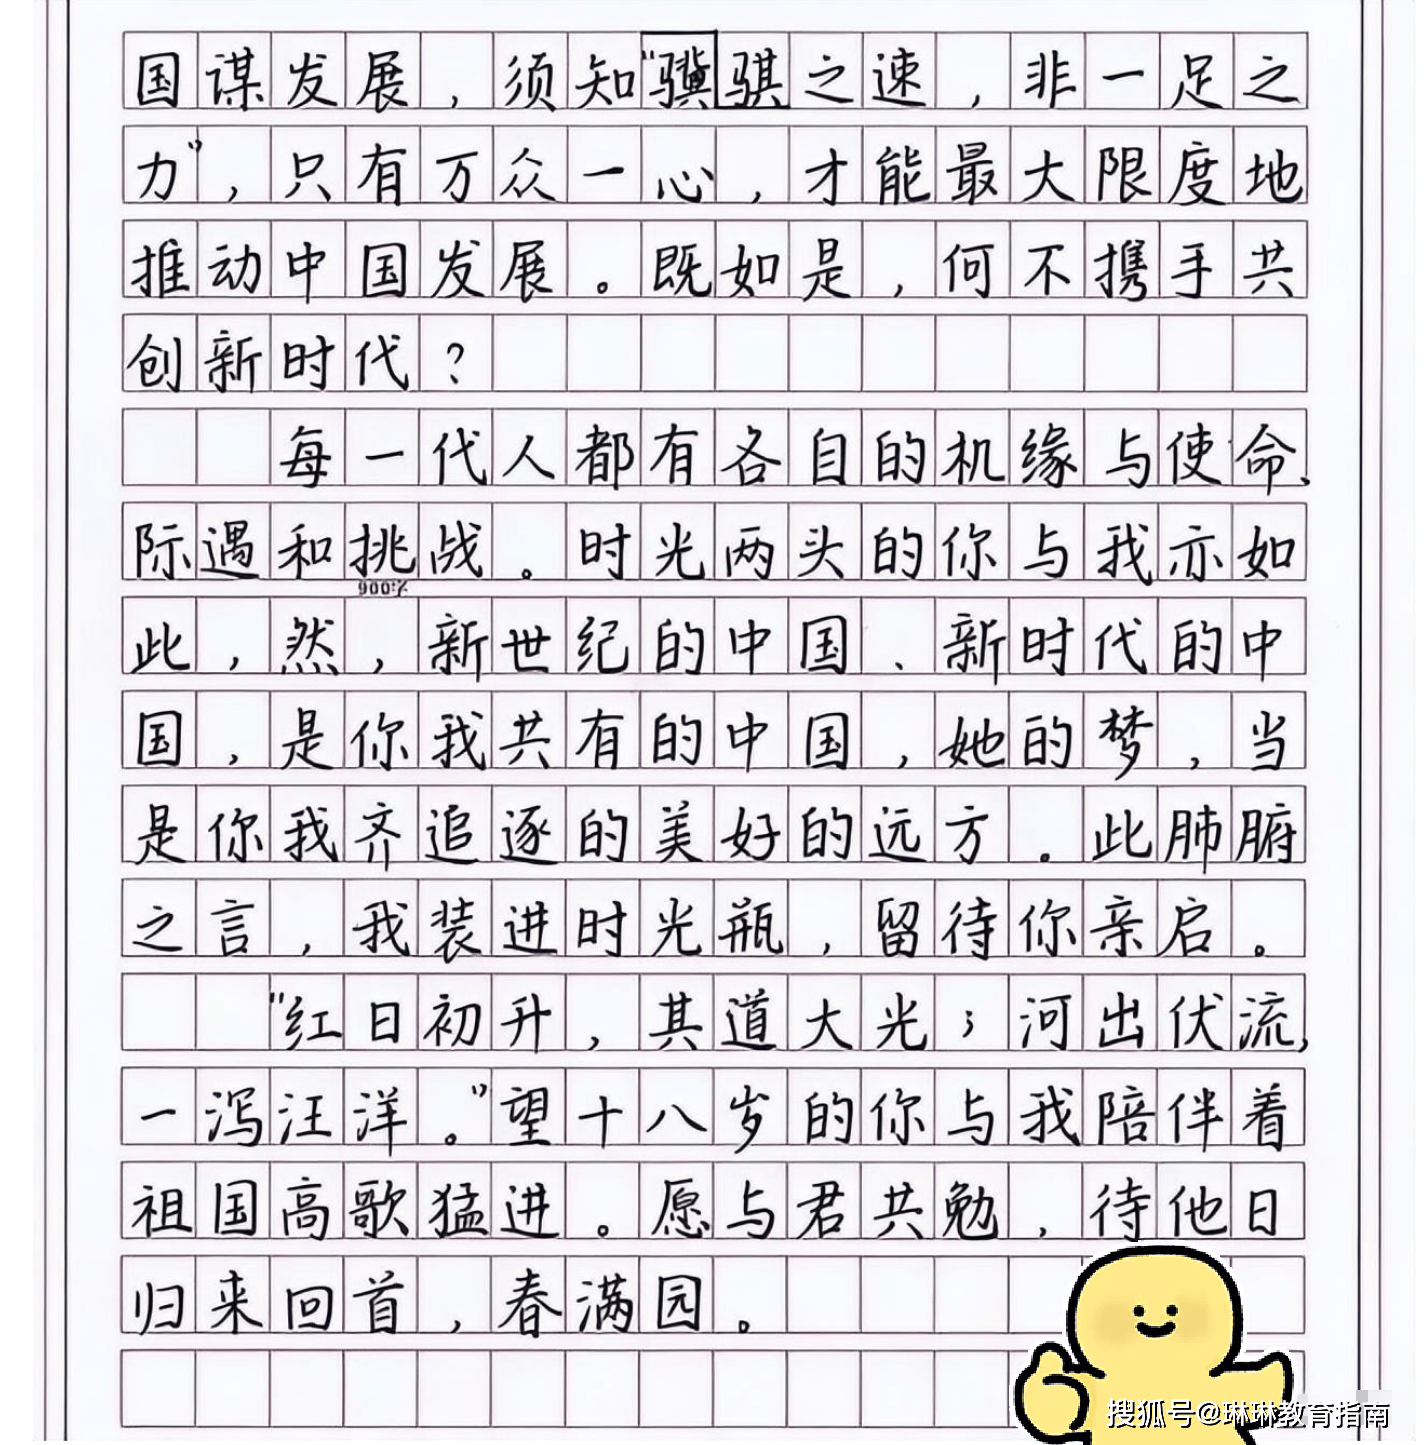 国谋发展，须知“骥骐之速，非一足之
力”，只有万众一心，才能最大限度地
推动中国发展。既如是，何不携手共
创新时代？
每一代人都有各自的机缘与使命、
际遇和挑战。时光两头的你与我亦如
900字
此，然，新世纪的中国、新时代的中
国，是你我共有的中国，她的梦，当
是你我齐追逐的美好的远方。此肺腑
之言，我装进时光瓶，留待你亲启。
“红日初升，其道大光；河出伏流，
一泻汪洋。”望十八岁的你与我陪伴着
祖国高歌猛进。愿与君共勉，待他日
归来回首，春满园。
搜狐号@琳琳教育指南